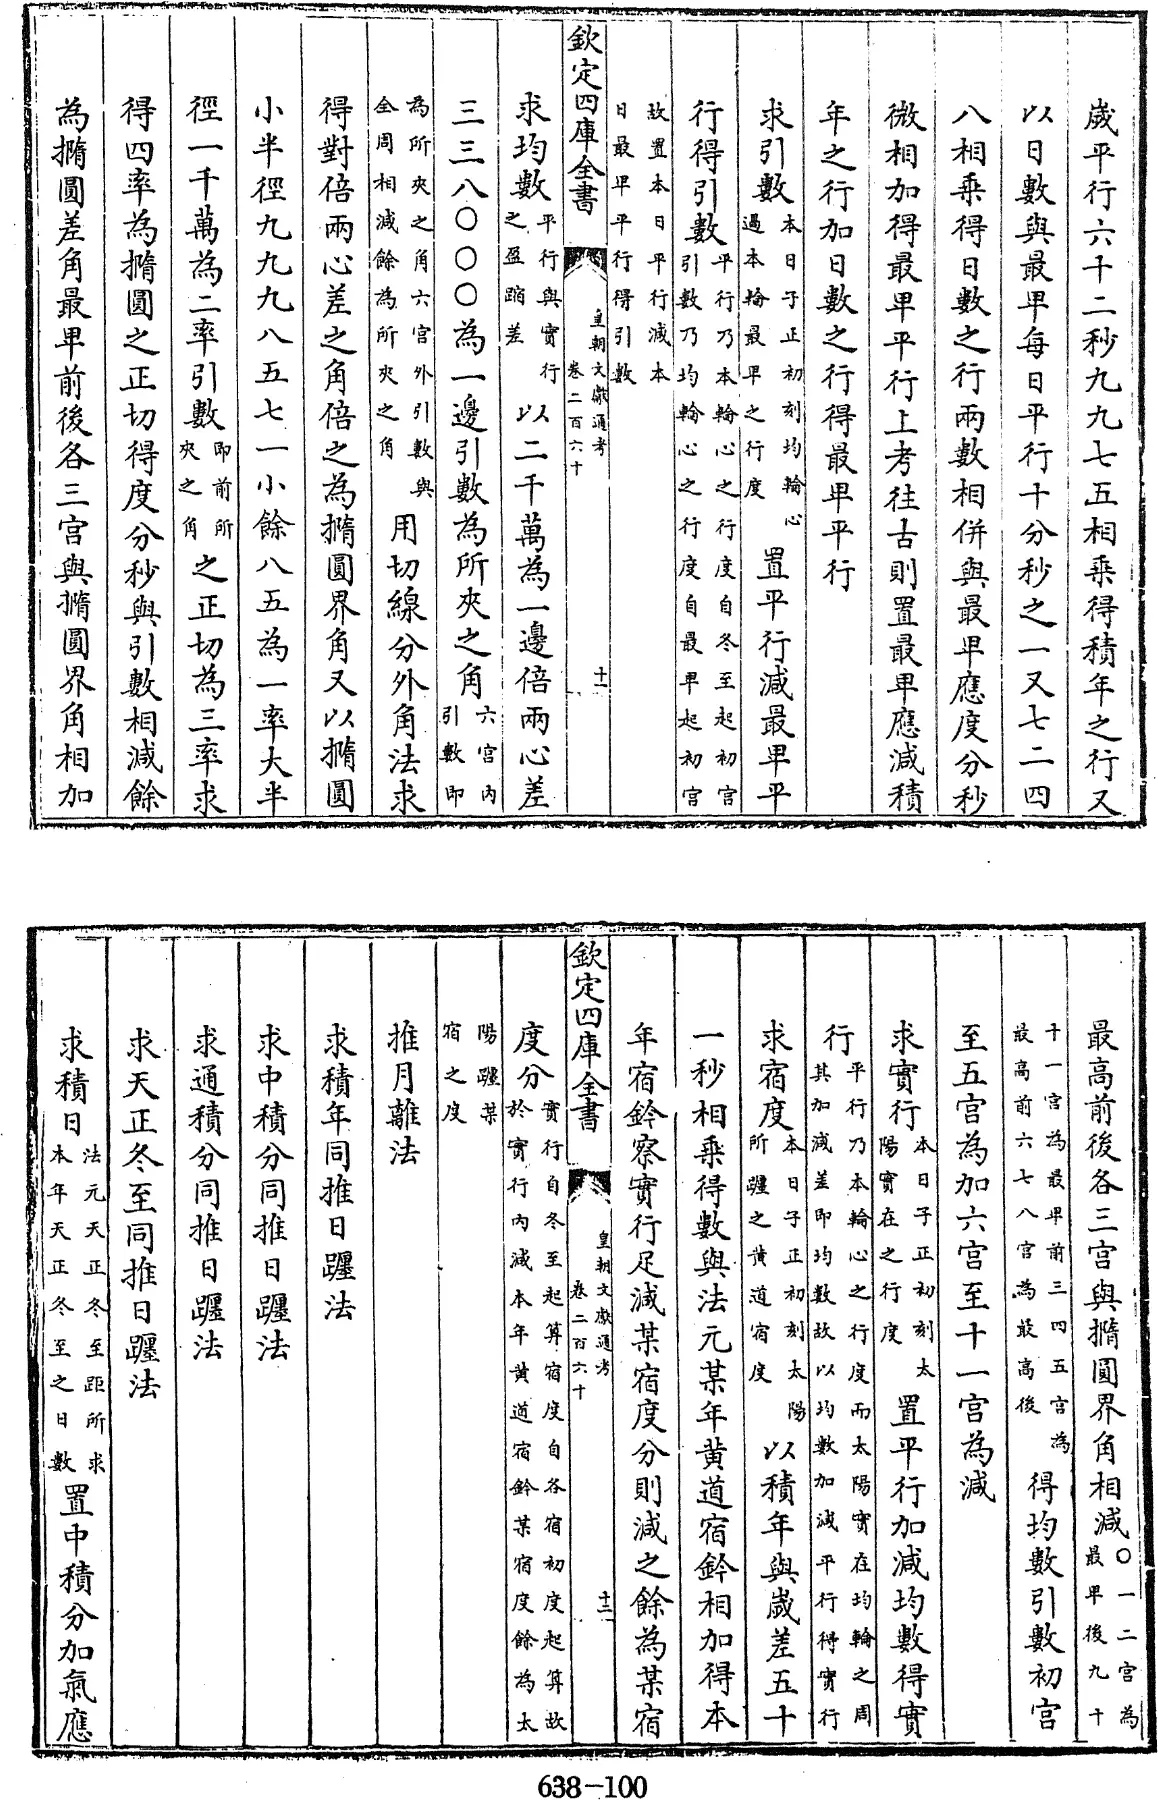 歲平行六十二秒九九七五相乘得積年之行又
以日數與最卑每日平行十分秒之一又七二四
八相乘得日數之行兩數相併與最卑應度分秒
微相加得最卑平行上考往古則置最卑應減積
年之行加日數之行得最卑平行
求引數本日子正初刻均輪心過本輪最卑之行度置平行減最卑平
行得引數平行乃本輪心之行度自冬至起初宮引數乃均輪心之行度自最卑起初宮
故置本日平行減本日最卑平行得引數
欽定四庫全書 皇朝文獻通考 卷二百六十 十一
求均數平行與實行之盈縮差以二千萬為一邊倍兩心差
三三八〇〇〇為一邊引數為所夾之角六宮內引數即
為所夾之角六宮外引數與全周相減餘為所夾之角用切線分外角法求
得對倍兩心差之角倍之為撱圓界角又以撱圓
小半徑九九九八五七一小餘八五為一率大半
徑一千萬為二率引數即前所夾之角之正切為三率求
得四率為撱圓之正切得度分秒與引數相減餘
為撱圓差角最卑前後各三宮與撱圓界角相加
最高前後各三宮與撱圓界角相減〇一二宮為最卑後九十
十一宮為最卑前三四五宮為最高前六七八宮為最高後得均數引數初宮
至五宮為加六宮至十一宮為減
求實行本日子正初刻太陽實在之行度置平行加減均數得實
行平行乃本輪心之行度而太陽實在均輪之周其加減差即均數故以均數加減平行得實行
求宿度本日子正初刻太陽所躔之黃道宿度以積年與歲差五十
一秒相乘得數與法元某年黃道宿鈐相加得本
年宿鈐察實行足減某宿度分則減之餘為某宿
欽定四庫全書 皇朝文獻通考 卷二百六十 十二
度分實行自冬至起算宿度自各宿初度起算故於實行內減本年黃道宿鈐某宿度餘為太
陽躔某宿之度
推月離法
求積年同推日躔法
求中積分同推日躔法
求通積分同推日躔法
求天正冬至同推日躔法
求積日法元天正冬至距所求本年天正冬至之日數置中積分加氣應
638-100